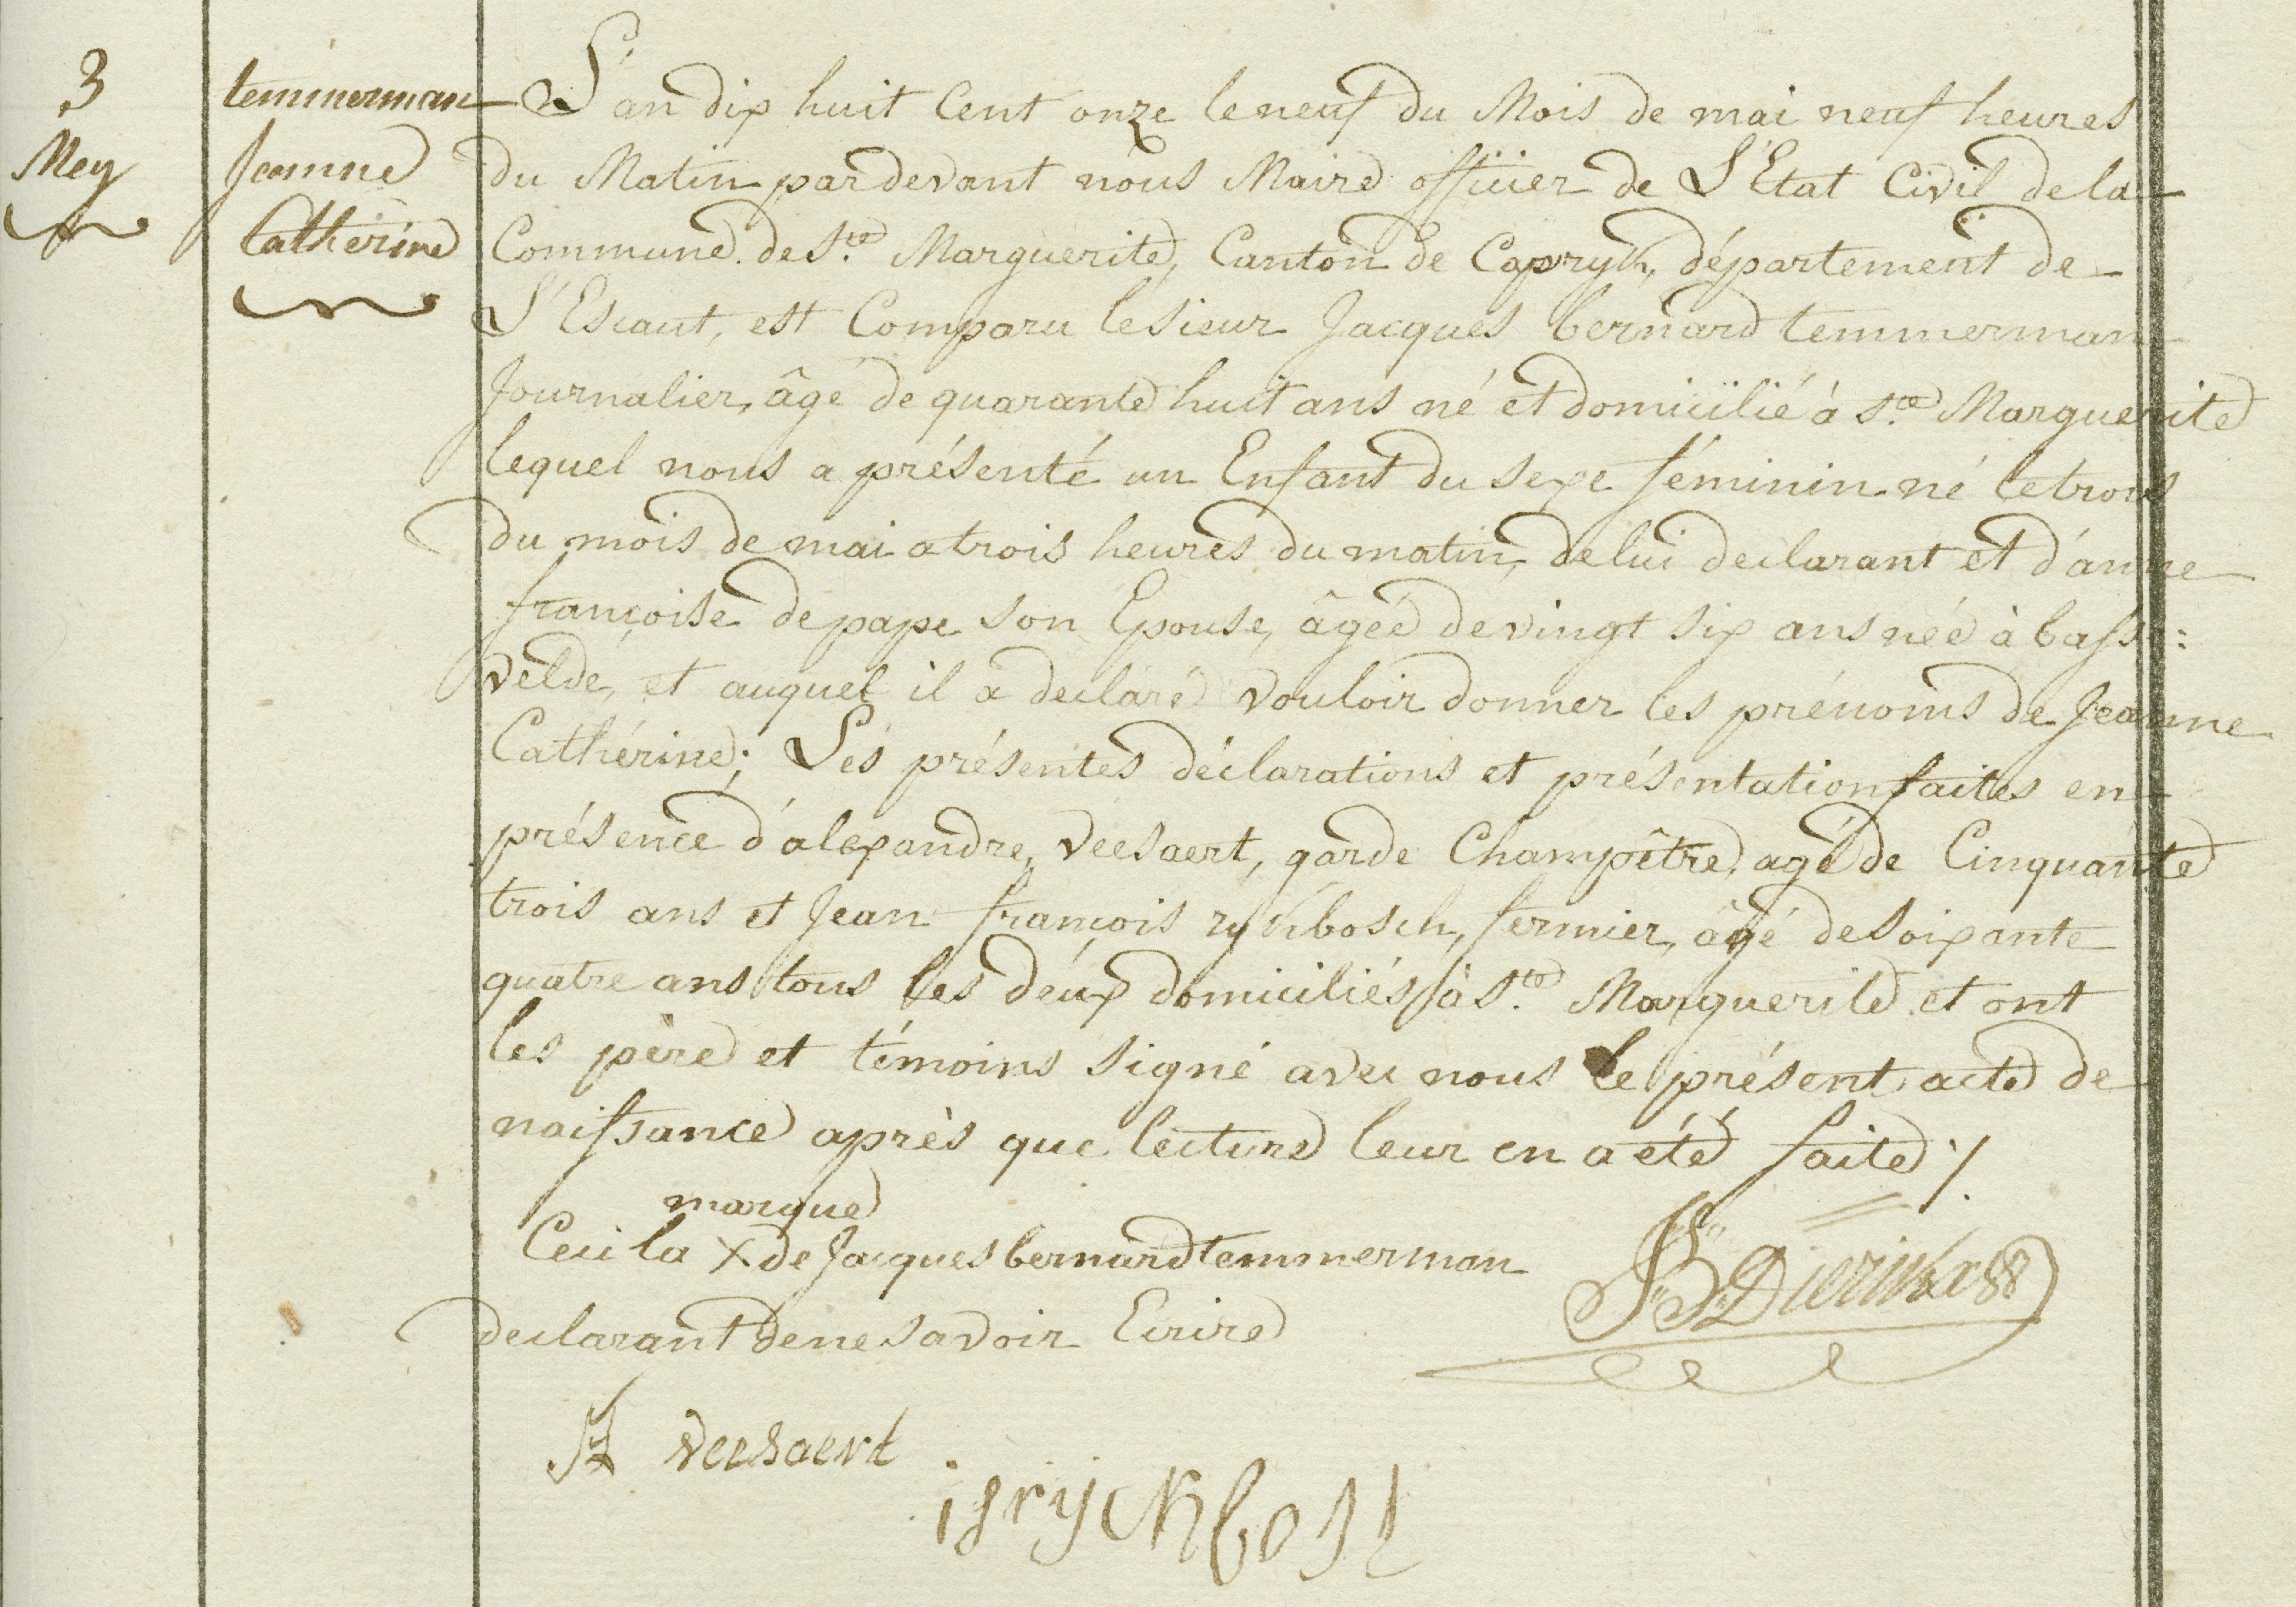 3
Mey
temmerman
Jeanne
Cathérine
L'an dix huit Cent onze le neuf du Mois de mai neuf heures
du Matin pardevant nous Maire officier de L'Etat Civil de la
Commune de Ste. Marguerite, Canton de Capryk, département de
L'Escaut, est Comparu le sieur Jacques bernard temmerman
Journalier, âgé de quarante huit ans né et domicilié à Ste. Marguerite
lequel nous a présenté un Enfant du sexe féminin né le trois
du mois de mai a trois heures du matin, de lui declarant et d'anne
françoise de pape son Epouse, âgéé de vingt six ans néé à basse:
velde, et auquel il a declaré vouloir donner les prénoms de Jeanne
Cathérine; Les présentes déclarations et présentation faites en
présence d'alexandre, veesaert, garde Champêtre, agé de Cinquante
trois ans et Jean françois rykbosch, fermier, âgé de soixante
quatre ans tous les deux domiciliés à Ste. Marguerite et ont
les père et témoins signé avec nous le présent acte de
naissance après que lecture leur en a été faite ./.
marque
Ceci la X de Jacques bernard temmerman
declarant de ne savoir Ecrire
veesaert